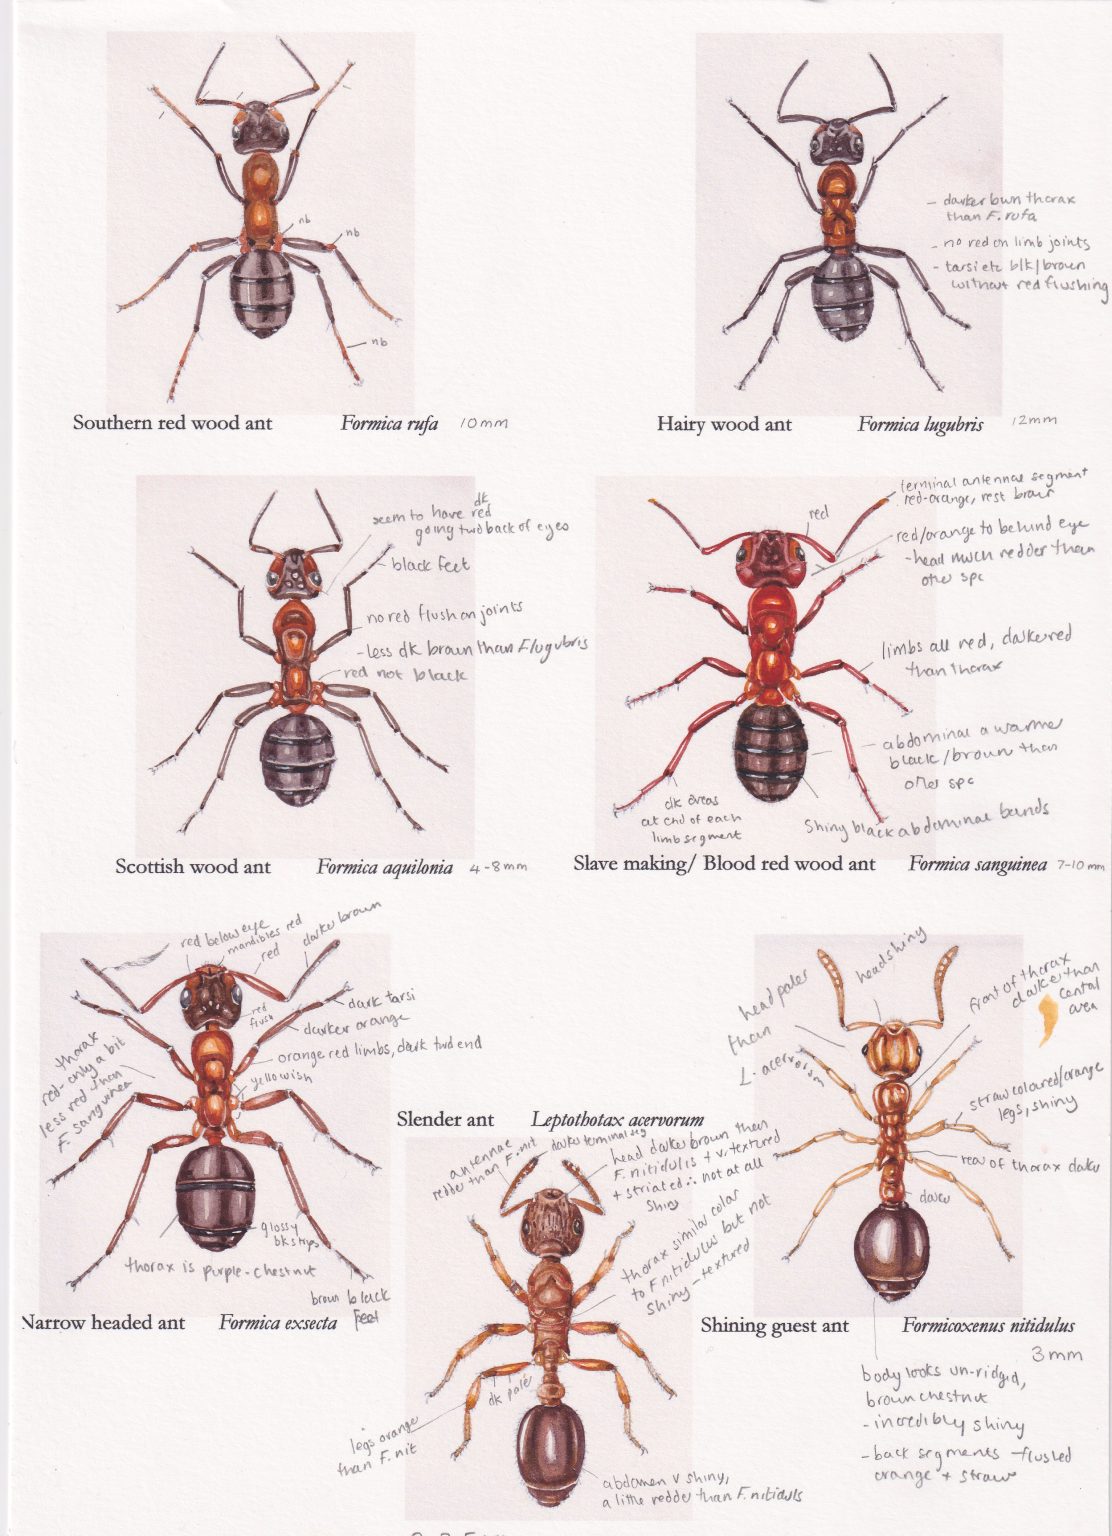 nb
nb
nb
Southern red wood ant
Formica rufa
10mm
- darker bwn thorax
than F. rufa
- no red on limb joints
- tarsi etc blk/brown
without red flushing
Hairy wood ant
Formica lugubris
12mm
dk
seem to have red
going twd back of eyes
black feet
no red flush on joints
- less dk brown than F lugubris
red not black
Scottish wood ant
Formica aquilonia
4-8mm
terminal antennae segment
red-orange, rest brown
red
red/orange to behind eye
- head much redder than
other spc
limbs all red, darker red
than thorax
abdominal a warmer
black/brown than
other spc
Shiny black abdominal bands
dk areas
at end of each
limb segment
Slave making/ Blood red wood ant
Formica sanguinea
7-10mm
red below eye
mandibles red
red
darker brown
red
flush
dark tarsi
darker orange
orange red limbs, dark twd end
yellowish
thorax
red-only a bit
less red than
F. sanguinea
glossy
bk strips
thorax is purple-chestnut
brown black
feet
Narrow headed ant
Formica exsecta
Slender ant
Leptothotax acervorum
antennae
redder than F. nit
darker terminal seg
head darker brown than
F. nitidulis + v. textured
+ striated ∴ not at all
Shiny
thorax similar color
to F nitidulus but not
shiny - textured
dk paler
legs orange
than F. nit
abdomen v shiny,
a little redder than F. nitiduls
head paler
than
L. acervorum
head shiny
front of thorax
darker than
cental
area
straw coloured/orange
legs, shiny
rear of thorax darker
darker
Shining guest ant
Formicoxenus nitidulus
3mm
body looks un-ridged,
brown chestnut
- incredibly shiny
- back segments - flushed
orange + straw